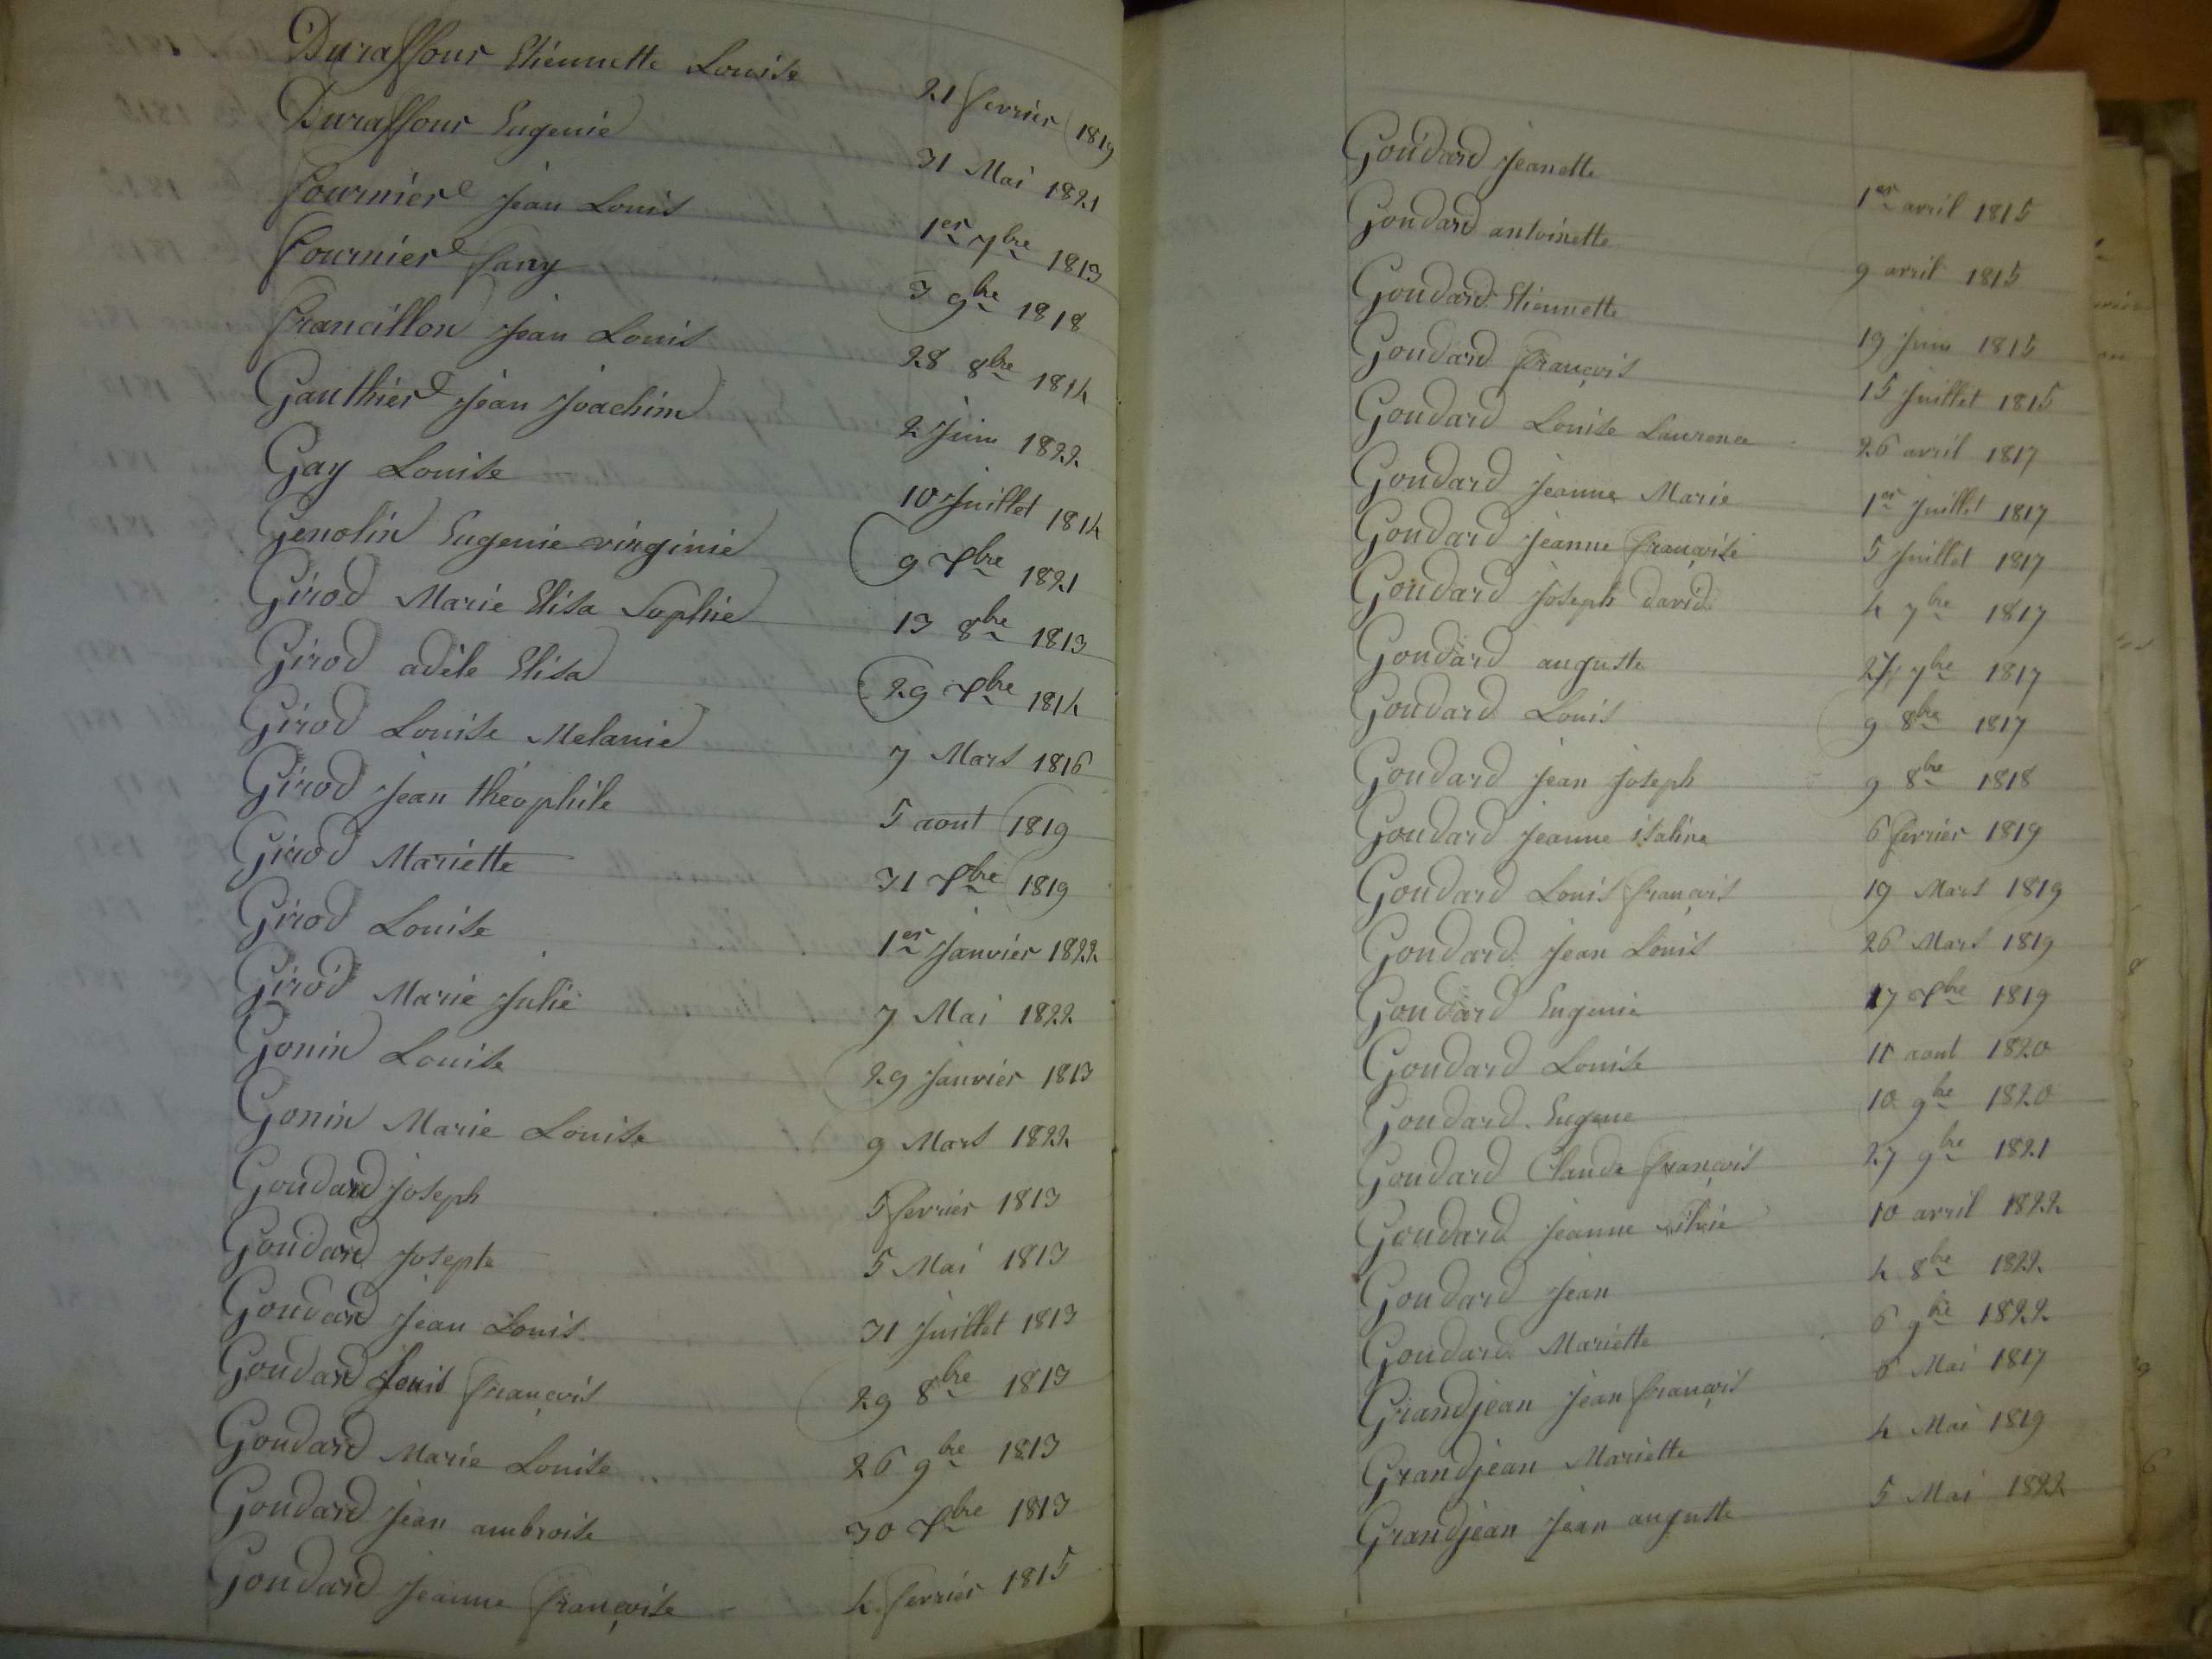 Duraffour Etiennette Louise 21 fevrier 1819
Duraffour Eugenie 31 Mai 1821
fournier Jean Louis 1er 7bre 1813
fournier fany 3 9bre 1818
francillon Jean Louis 28 8bre 1814
Gauthier Jean Joachim 2 Juin 1822
Gay Louise 10 Juillet 1814
Genolin Eugenie virginie 9 Xbre 1821
Girod Marie Elisa Sophie 13 8bre 1813
Girod adèle Elisa 29 Xbre 1814
Girod Louise Melanie 7 Mars 1816
Girod Jean théophile 5 aout 1819
Girod Mariette 31 Xbre 1819
Girod Louise 1er Janvier 1822
Girod Marie Julie 7 Mai 1822
Gonin Louise 29 Janvier 1813
Gonin Marie Louise 9 Mars 1822
Goudard Joseph 5 fevrier 1813
Goudard Josephe 5 Mai 1813
Goudard Jean Louis 31 Juillet 1813
Goudard Louis françois 29 8bre 1813
Goudard Marie Louise 26 9bre 1813
Goudard Jean ambroise 30 Xbre 1813
Goudard Jeanne françoise 4 fevrier 1815
Goudard Jeanette 1er avril 1815
Goudard antoinette 9 avril 1815
Goudard Etiennette 19 Juin 1815
Goudard françois 15 Juillet 1815
Goudard Louise Laurence 26 avril 1817
Goudard Jeanne Marie 1er Juillet 1817
Goudard Jeanne françoise 5 Juillet 1817
Goudard Joseph david 4 7bre 1817
Goudard auguste 27 7bre 1817
Goudard Louis 9 8bre 1817
Goudard Jean Joseph 9 8bre 1818
Goudard Jeanne isaline 6 fevrier 1819
Goudard Louis françois 19 Mars 1819
Goudard Jean Louis 26 Mars 1819
Goudard Eugenie 17 Xbre 1819
Goudard Louise 11 aout 1820
Goudard Eugene 10 9bre 1820
Goudard Claude françois 27 9bre 1821
Goudard Jeanne 10 avril 1822
Goudard Jean 4 8bre 1822
Goudard Mariette 6 9bre 1822
Grandjean Jean françois 6 Mai 1817
Grandjean Mariette 4 Mai 1819
Grandjean Jean auguste 5 Mai 1822